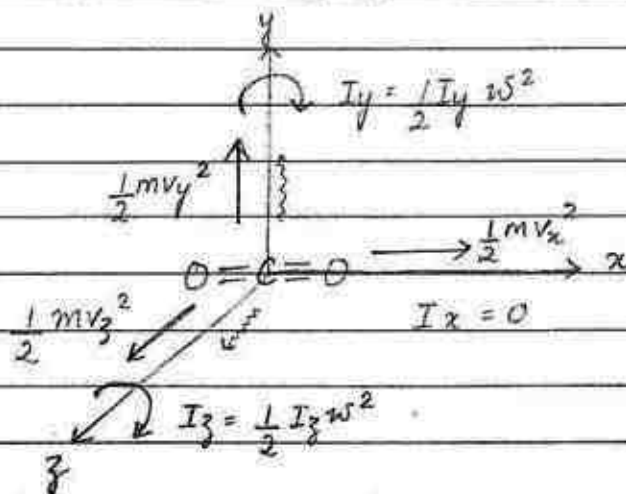 y
Iy = 1/2 Iy ω²
1/2 mvy²
1/2 mvx²
O = C = O
x
1/2 mvz²
Ix = 0
Iz = 1/2 Iz ω²
z